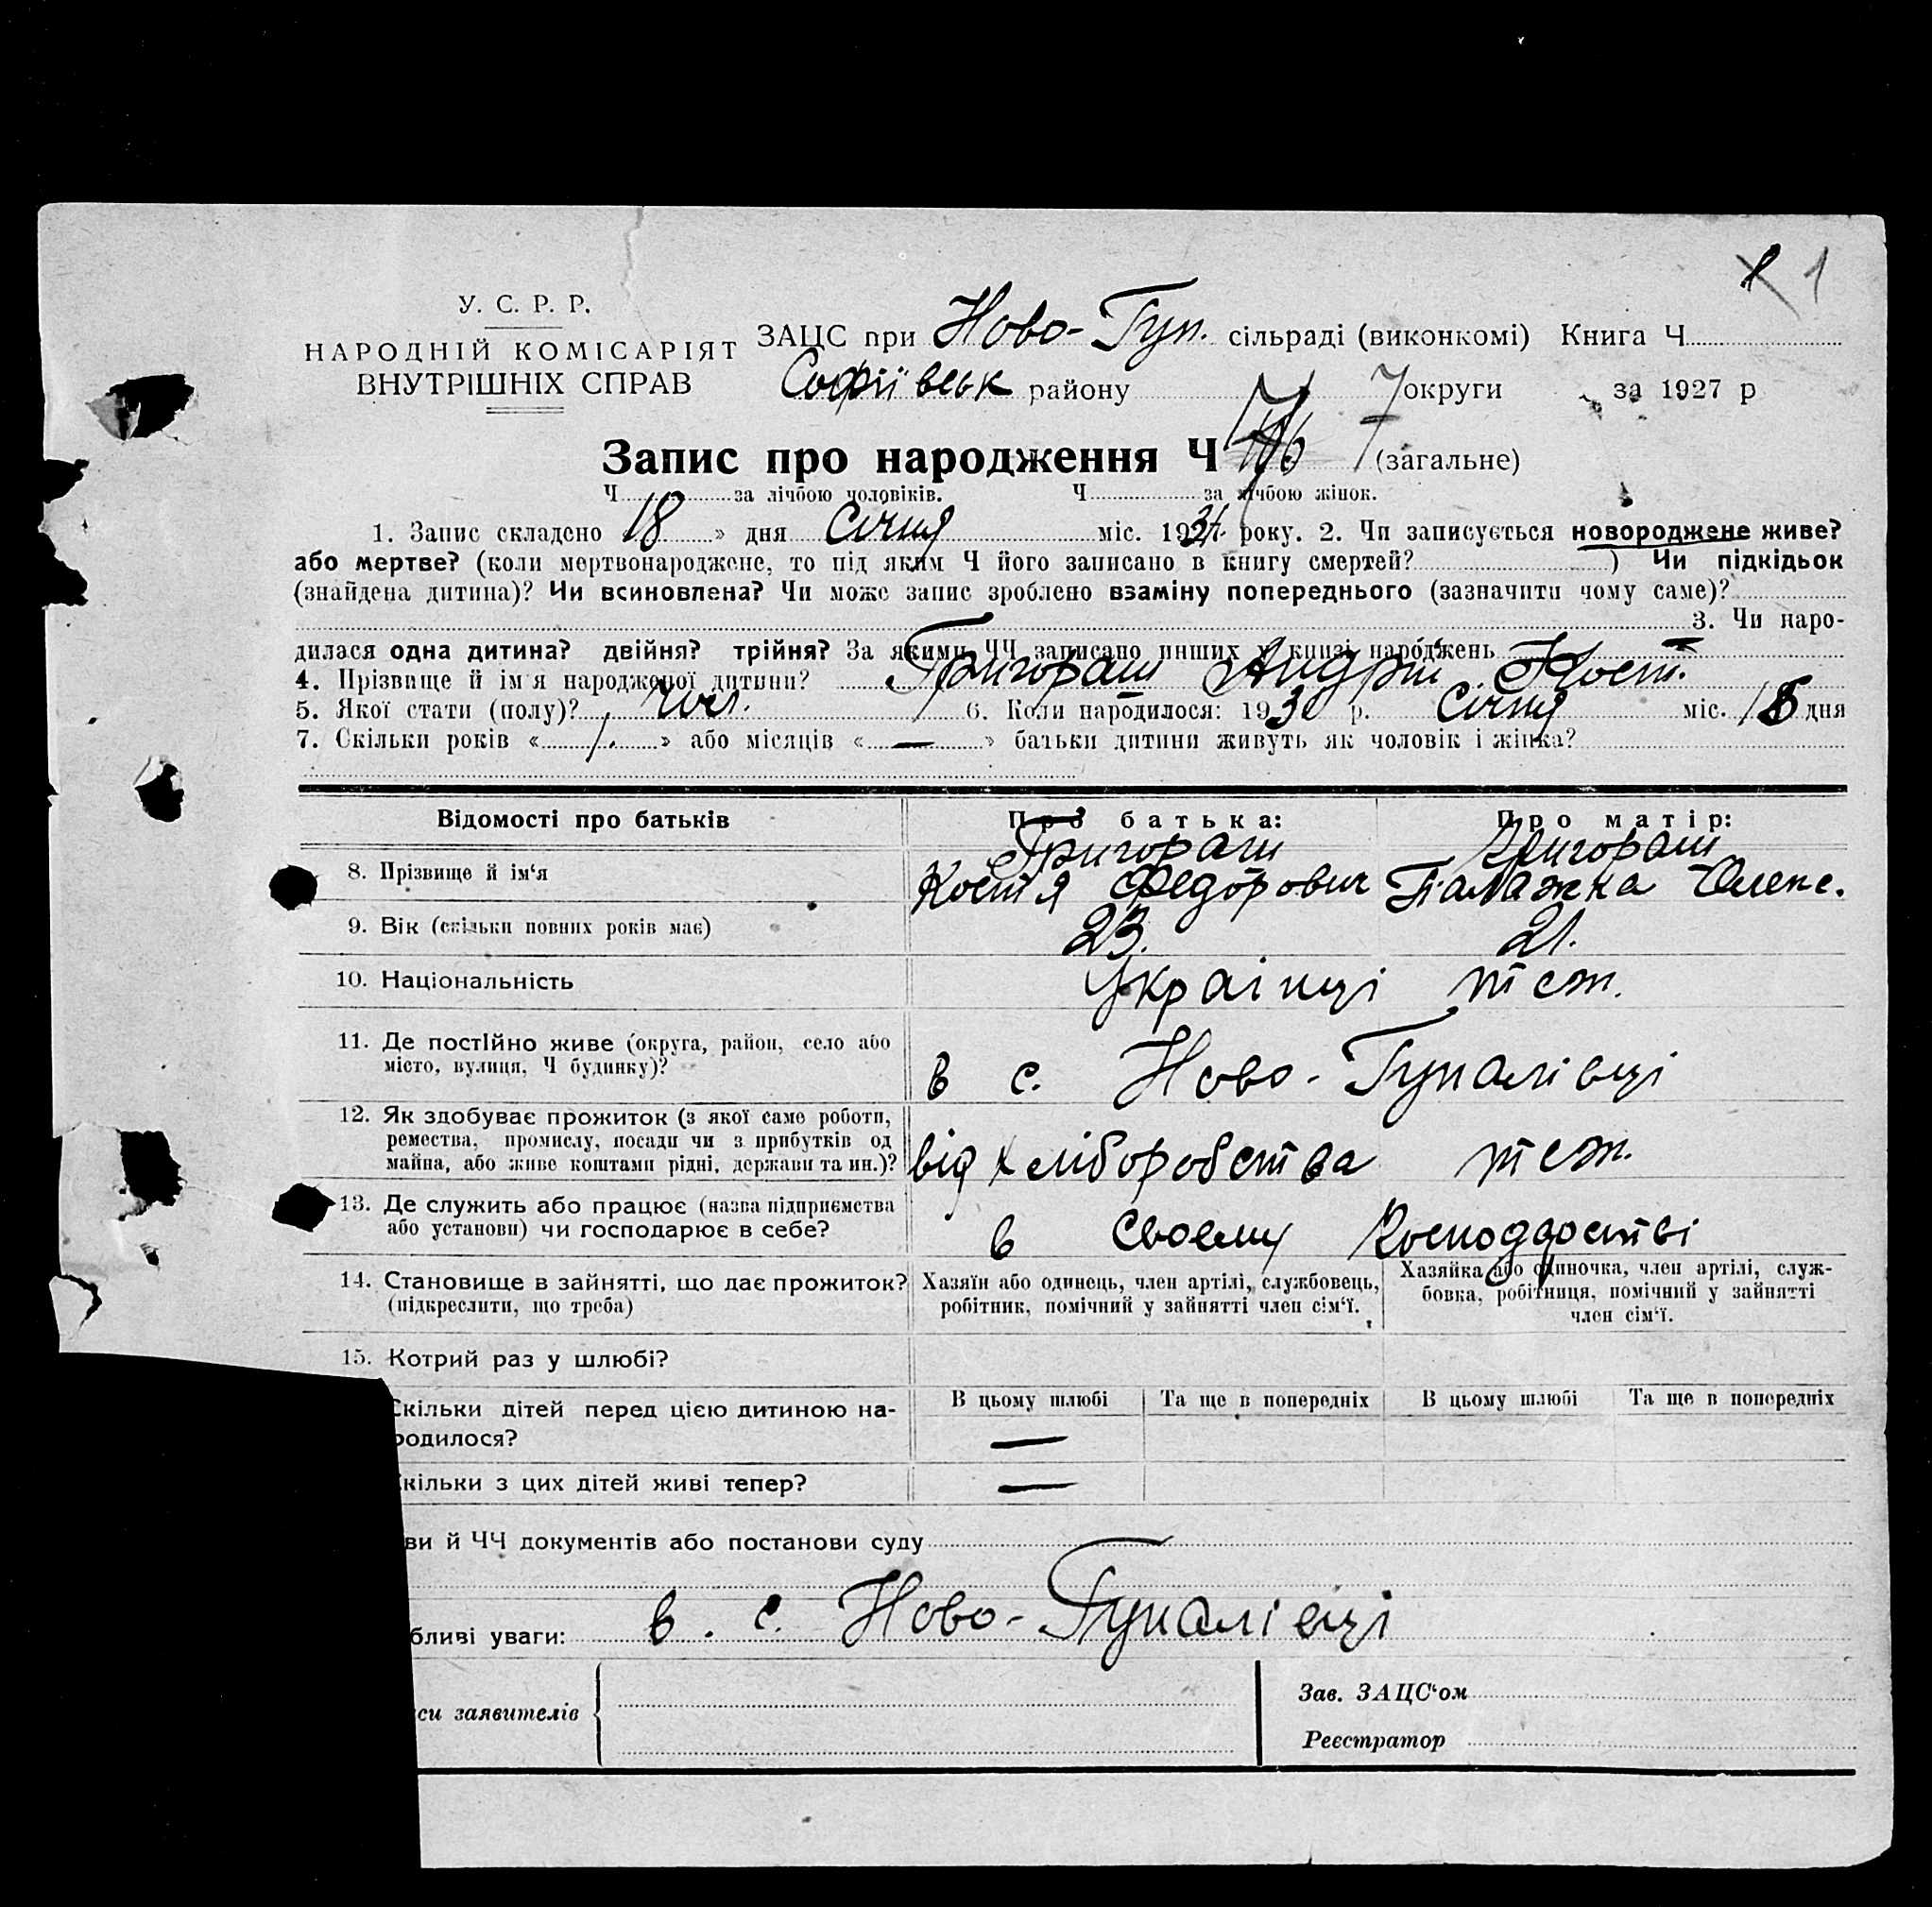 1
У. С. Р. Р.
НАРОДНІЙ КОМІСАРІЯТ
ВНУТРІШНІХ СПРАВ
ЗАЦС при Ново-Гуп. сільраді (виконкомі) Книга Ч
Софіївськ району округи за 1927 р
Запис про народження Ч (загальне)
Ч за лічбою чоловіків. Ч за лічбою жінок.
1. Запис складено 18 » дня Січня міс. 192 року. 2. Чи записується новороджене живе?
або мертве? (коли мертвонароджене, то під яким Ч його записано в книгу смертей? ) Чи підкідьок
(знайдена дитина)? Чи всиновлена? Чи може запис зроблено взаміну попереднього (зазначити чому саме)?
3. Чи наро-
дилася одна дитина? двійня? трійня? За якими ЧЧ записано инших у книзі народжень
4. Прізвище й ім'я народженої дитини? Григораш Андрій Кост.
5. Якої стати (полу)? чол. 6. Коли народилося: 1930 р. Січня міс. 18 дня
7. Скільки років « 1. » або місяців « — » батьки дитини живуть як чоловік і жінка?
Відомості про батьків Про батька: Про матір:
Григораш Григораш
8. Прізвище й ім'я Костя Федорович Палажка Олекс.
9. Вік (скільки повних років має) 23. 21.
10. Національність Українці теж.
11. Де постійно живе (округа, район, село або
місто, вулиця, Ч будинку)? в с. Ново-Гупалівці
12. Як здобуває прожиток (з якої саме роботи,
ремества, промислу, посади чи з прибутків од
майна, або живе коштами рідні, держави та ин.)? від хліборобства теж.
13. Де служить або працює (назва підприємства
або установи) чи господарює в себе? в своему господарстві
14. Становище в зайнятті, що дає прожиток? Хазяїн або одинець, член артілі, службовець, Хазяйка або одиночка, член артілі, служ-
(підкреслити, що треба) робітник, помічний у зайнятті член сім'ї. бовка, робітниця, помічний у зайнятті
член сім'ї.
15. Котрий раз у шлюбі?
Скільки дітей перед цією дитиною на- В цьому шлюбі Та ще в попередніх В цьому шлюбі Та ще в попередніх
родилося? —
кільки з цих дітей живі тепер? —
ви й ЧЧ документів або постанови суду
бливі уваги: в. с. Ново-Гупалівці
си заявителів Зав. ЗАЦС'ом
Реєстратор